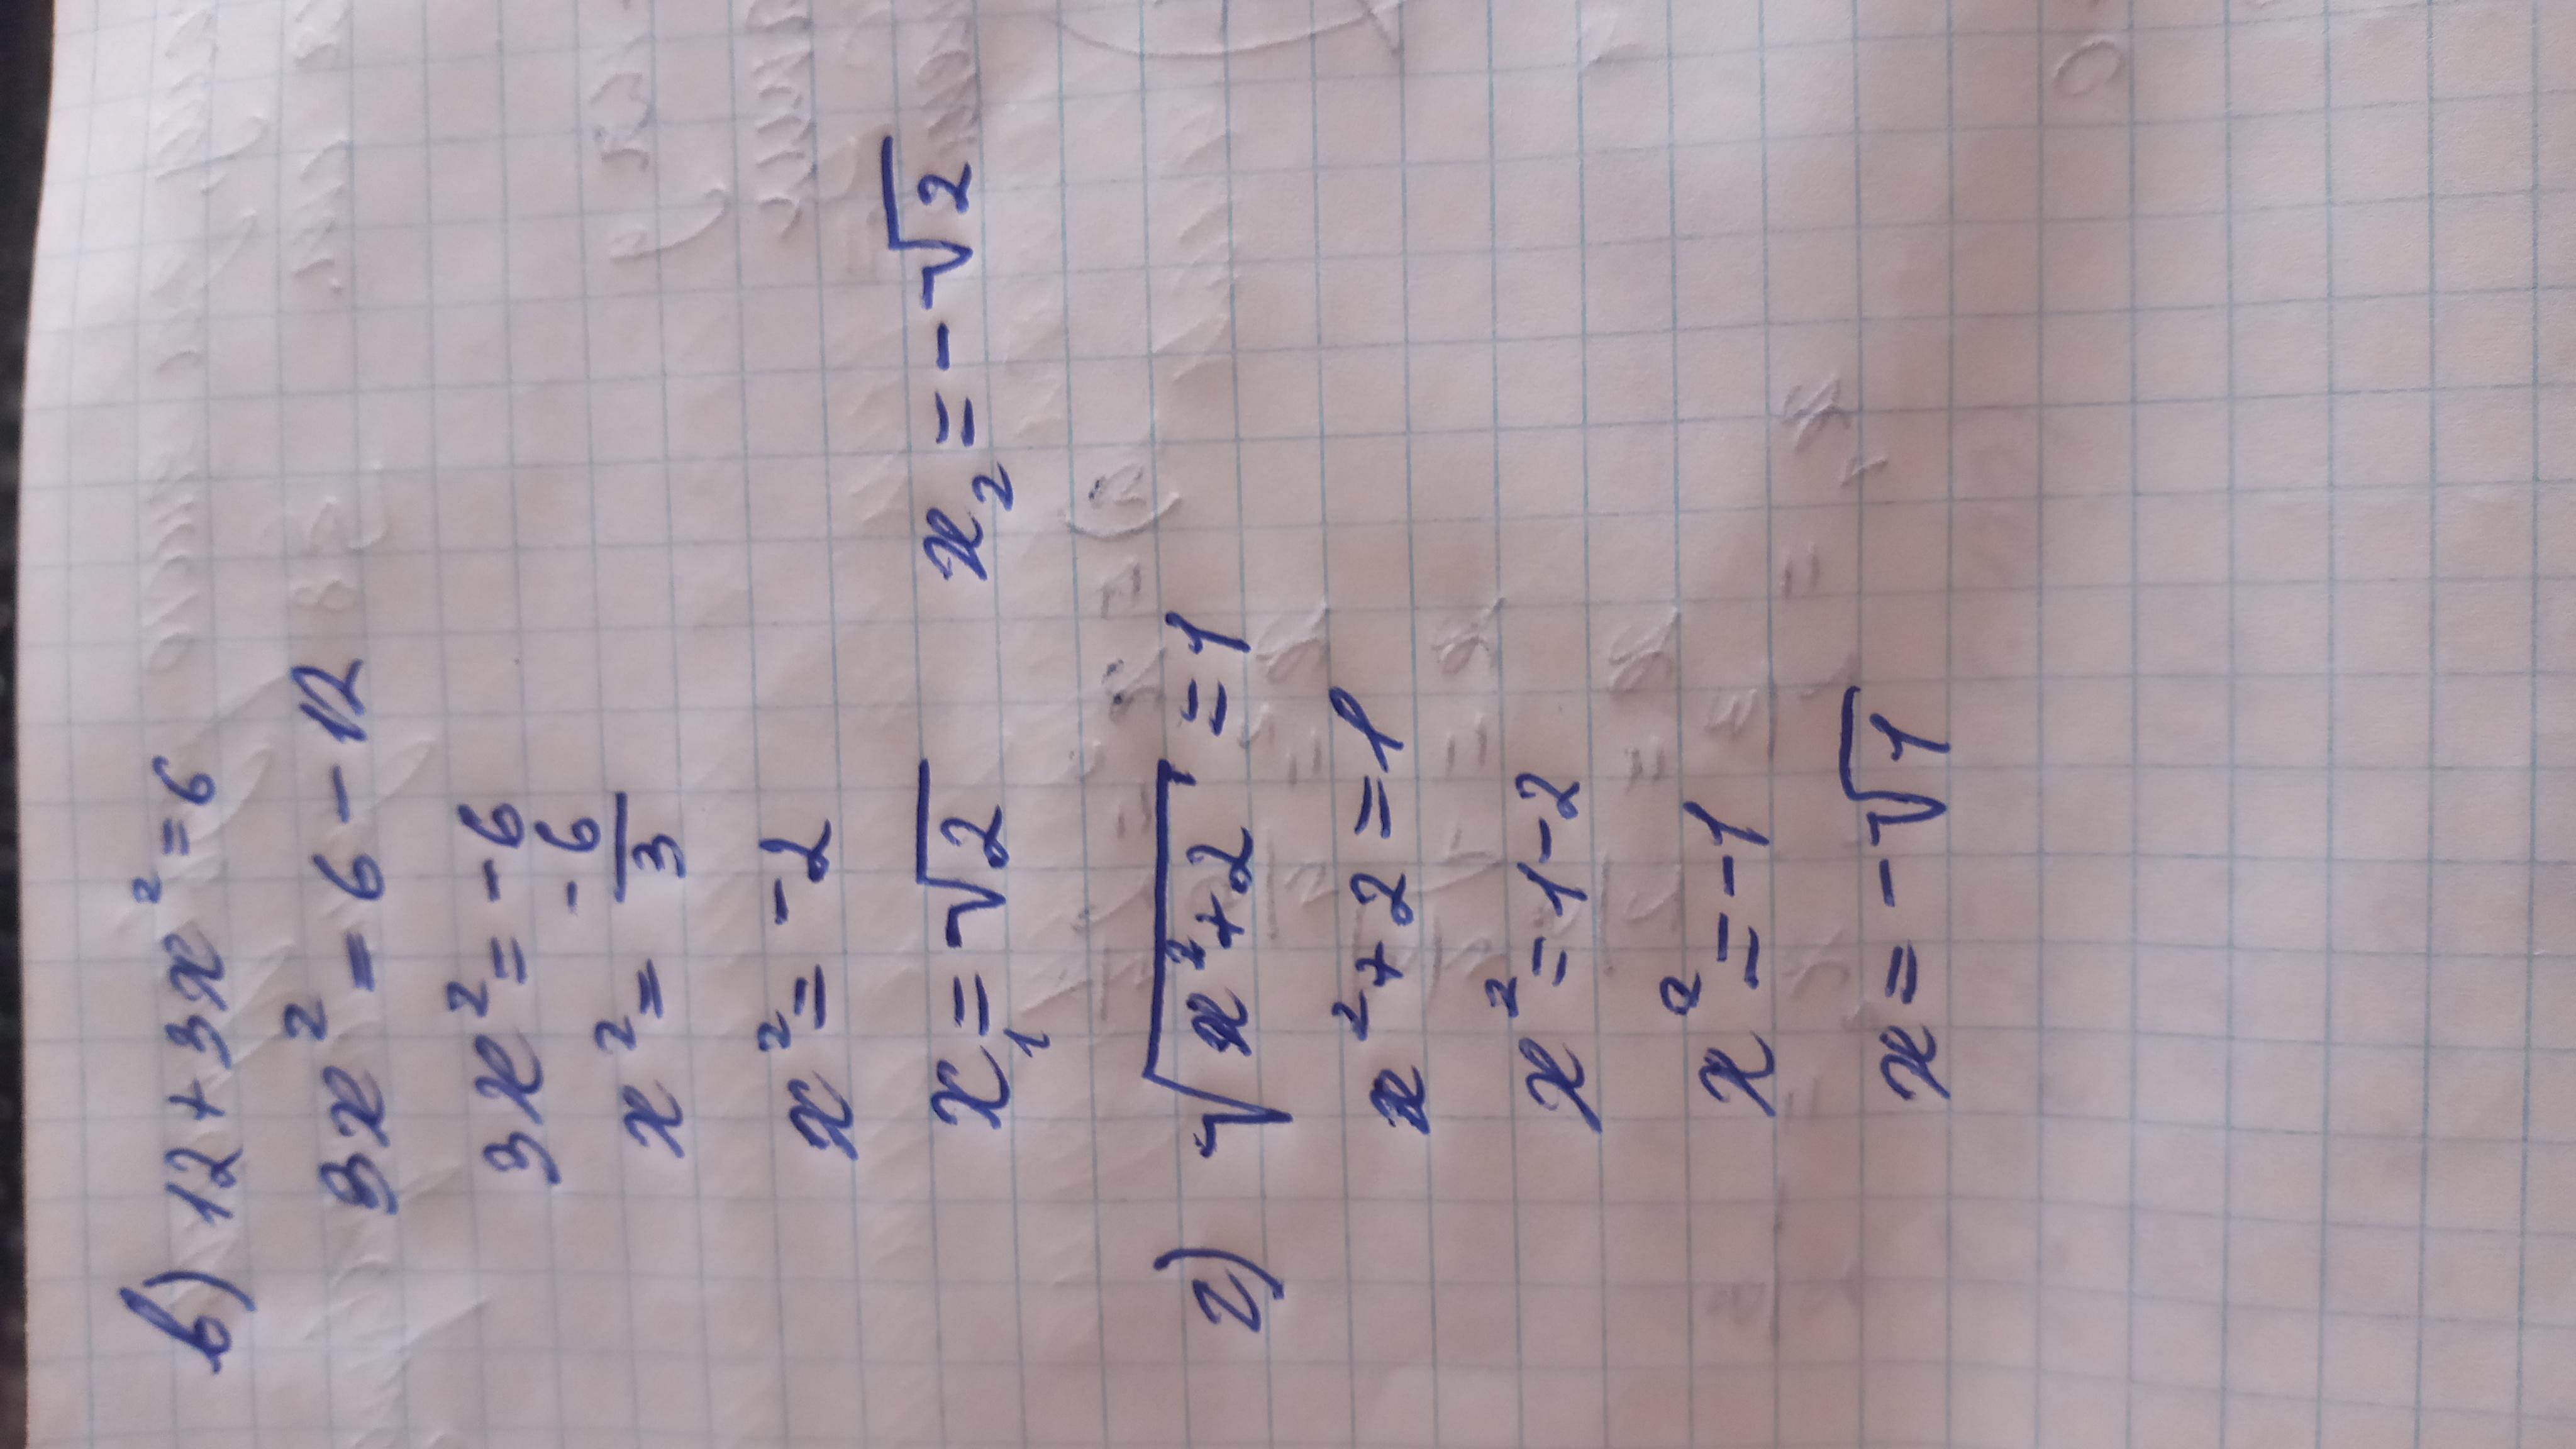 в) 12 + 3x² = 6
3x² = 6 - 12
3x² = -6
x² = -6/3
x² = -2
x₁ = √2 x₂ = -√2
г) √(x²+2) = 1
x² + 2 = 1
x² = 1 - 2
x² = -1
x = -√1